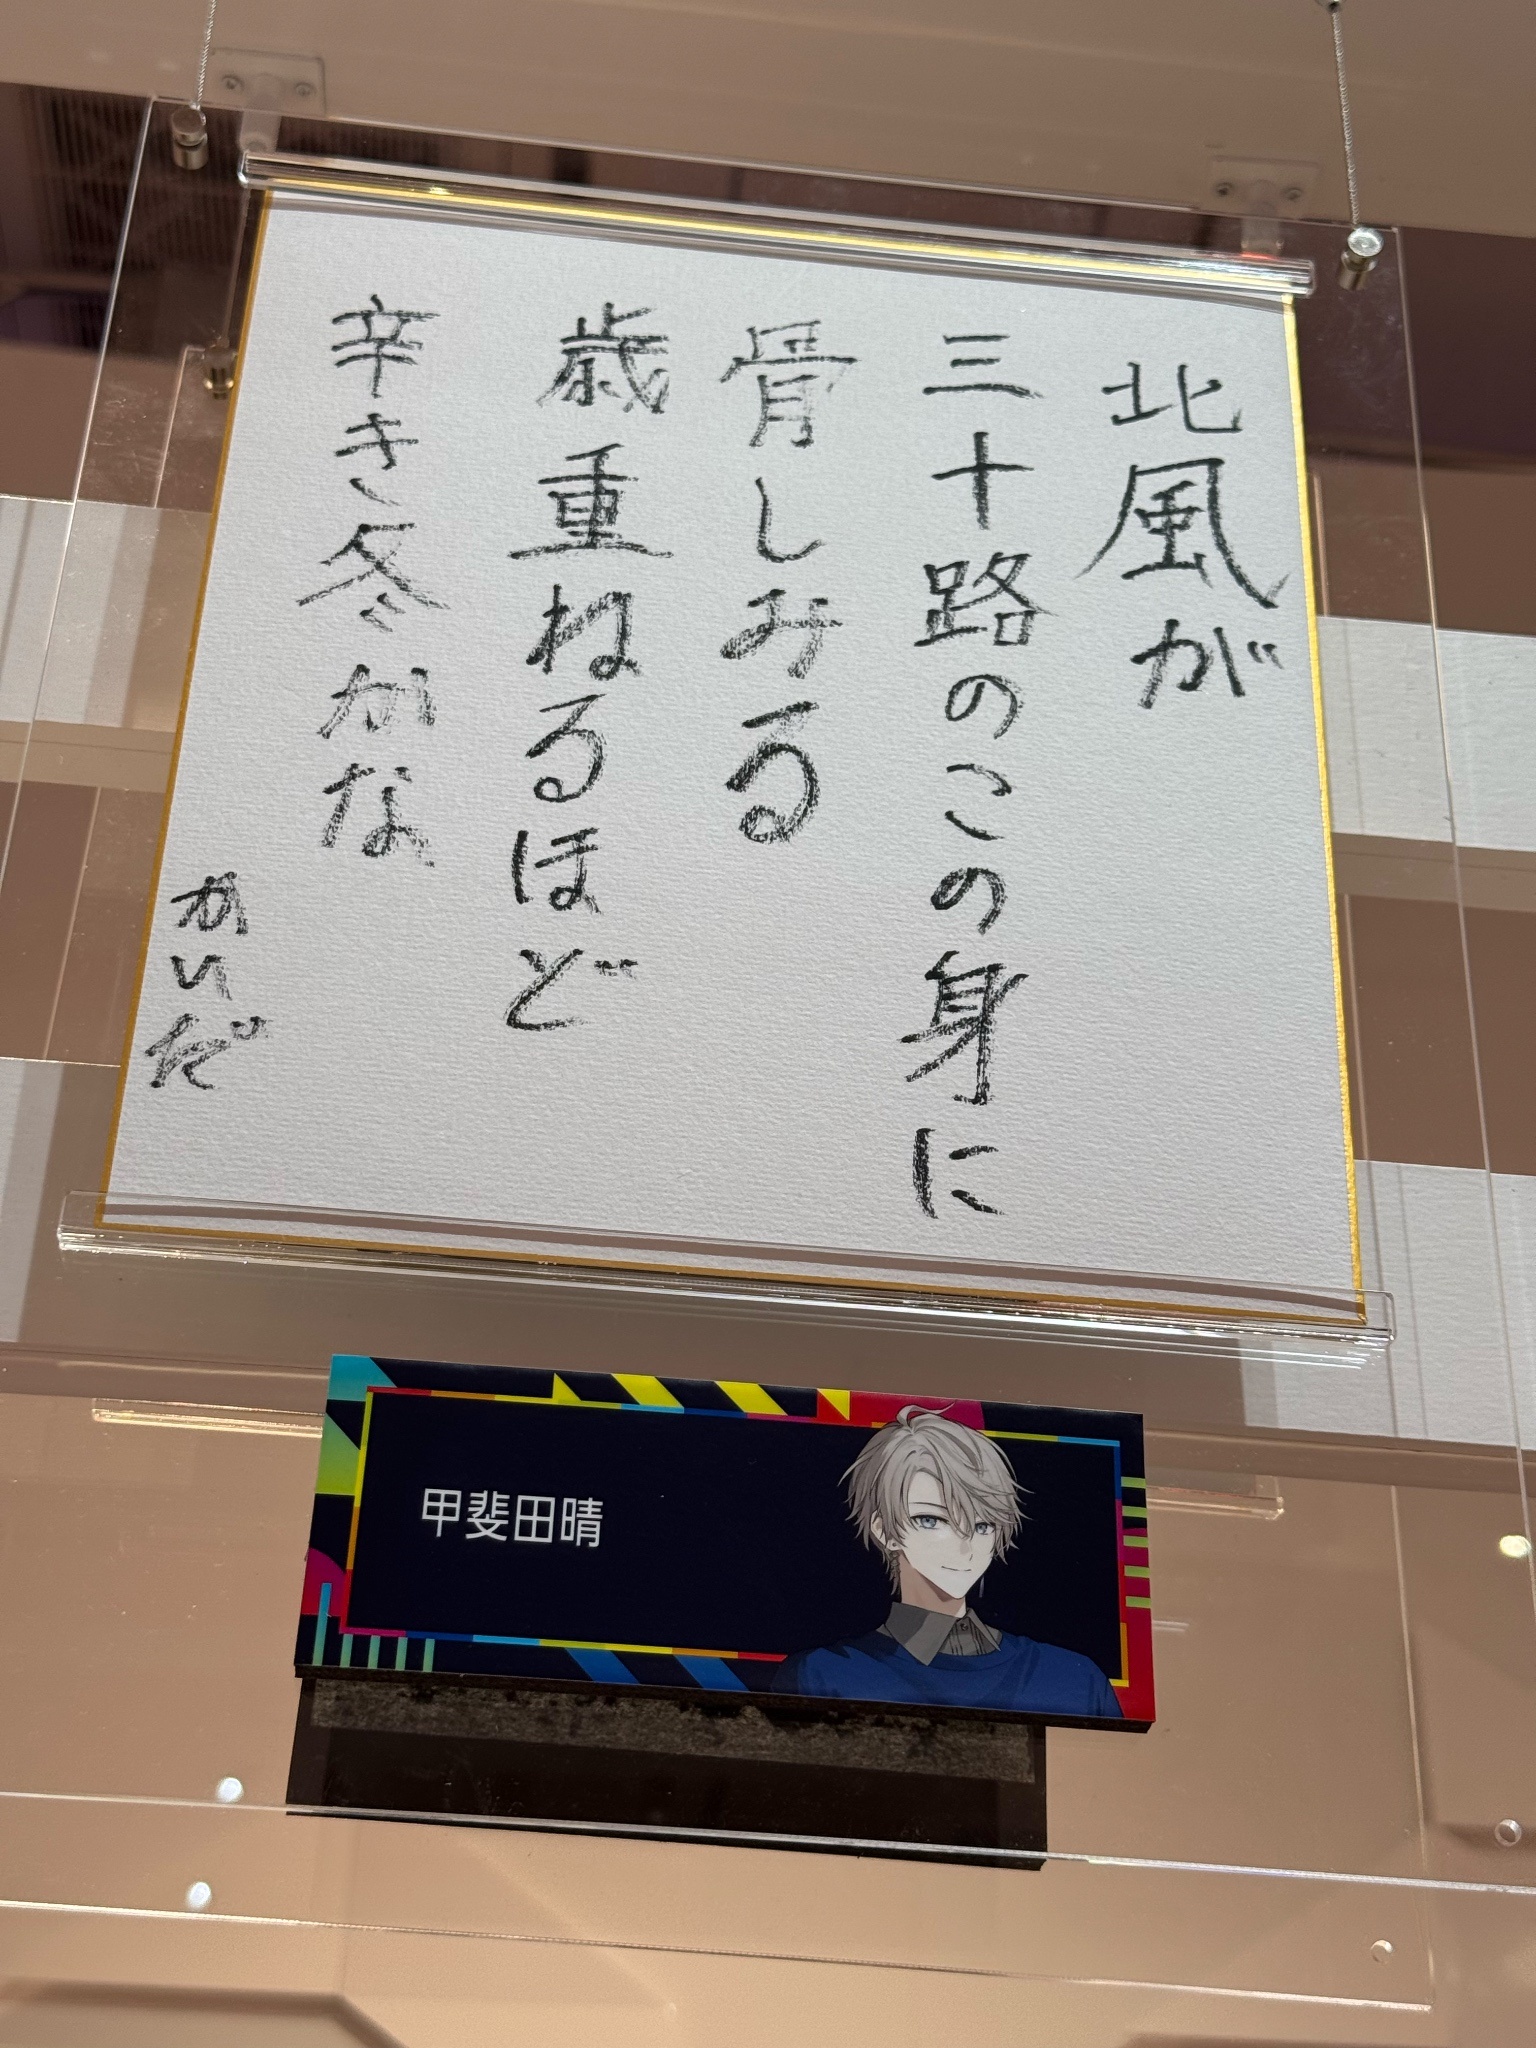 北風が
三十路のこの身に
骨しみる
歳重ねるほど
辛き冬かな
かいだ
甲斐田晴